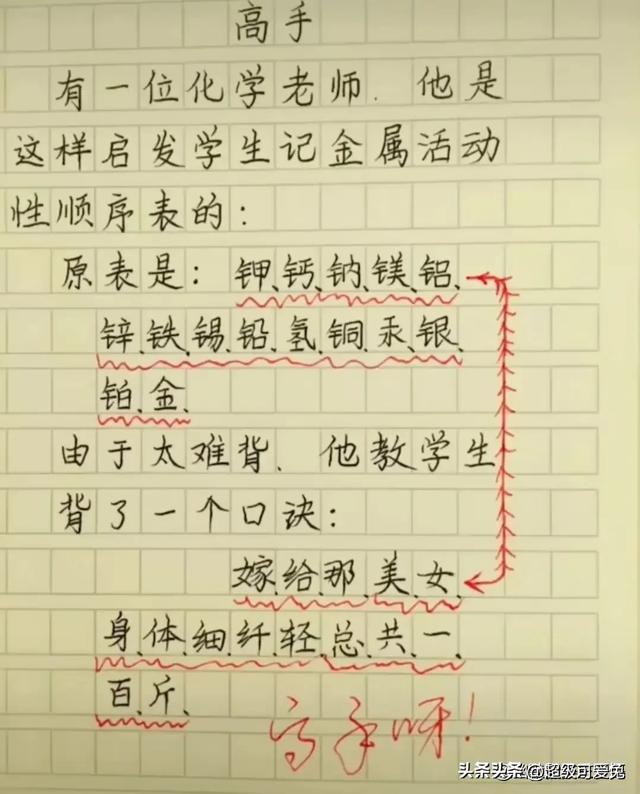 高手
有一位化学老师.他是
这样启发学生记金属活动
性顺序表的:
原表是:钾、钙、钠、镁、铝、
锌、铁、锡、铅、氢、铜、汞、银、
铂、金、
由于太难背、他教学生
背了一个口诀:
嫁、给、那、美、女、
身、体、细、纤、轻、总、共、一、
百、斤、
高手呀!
头条头条@超级可爱兔